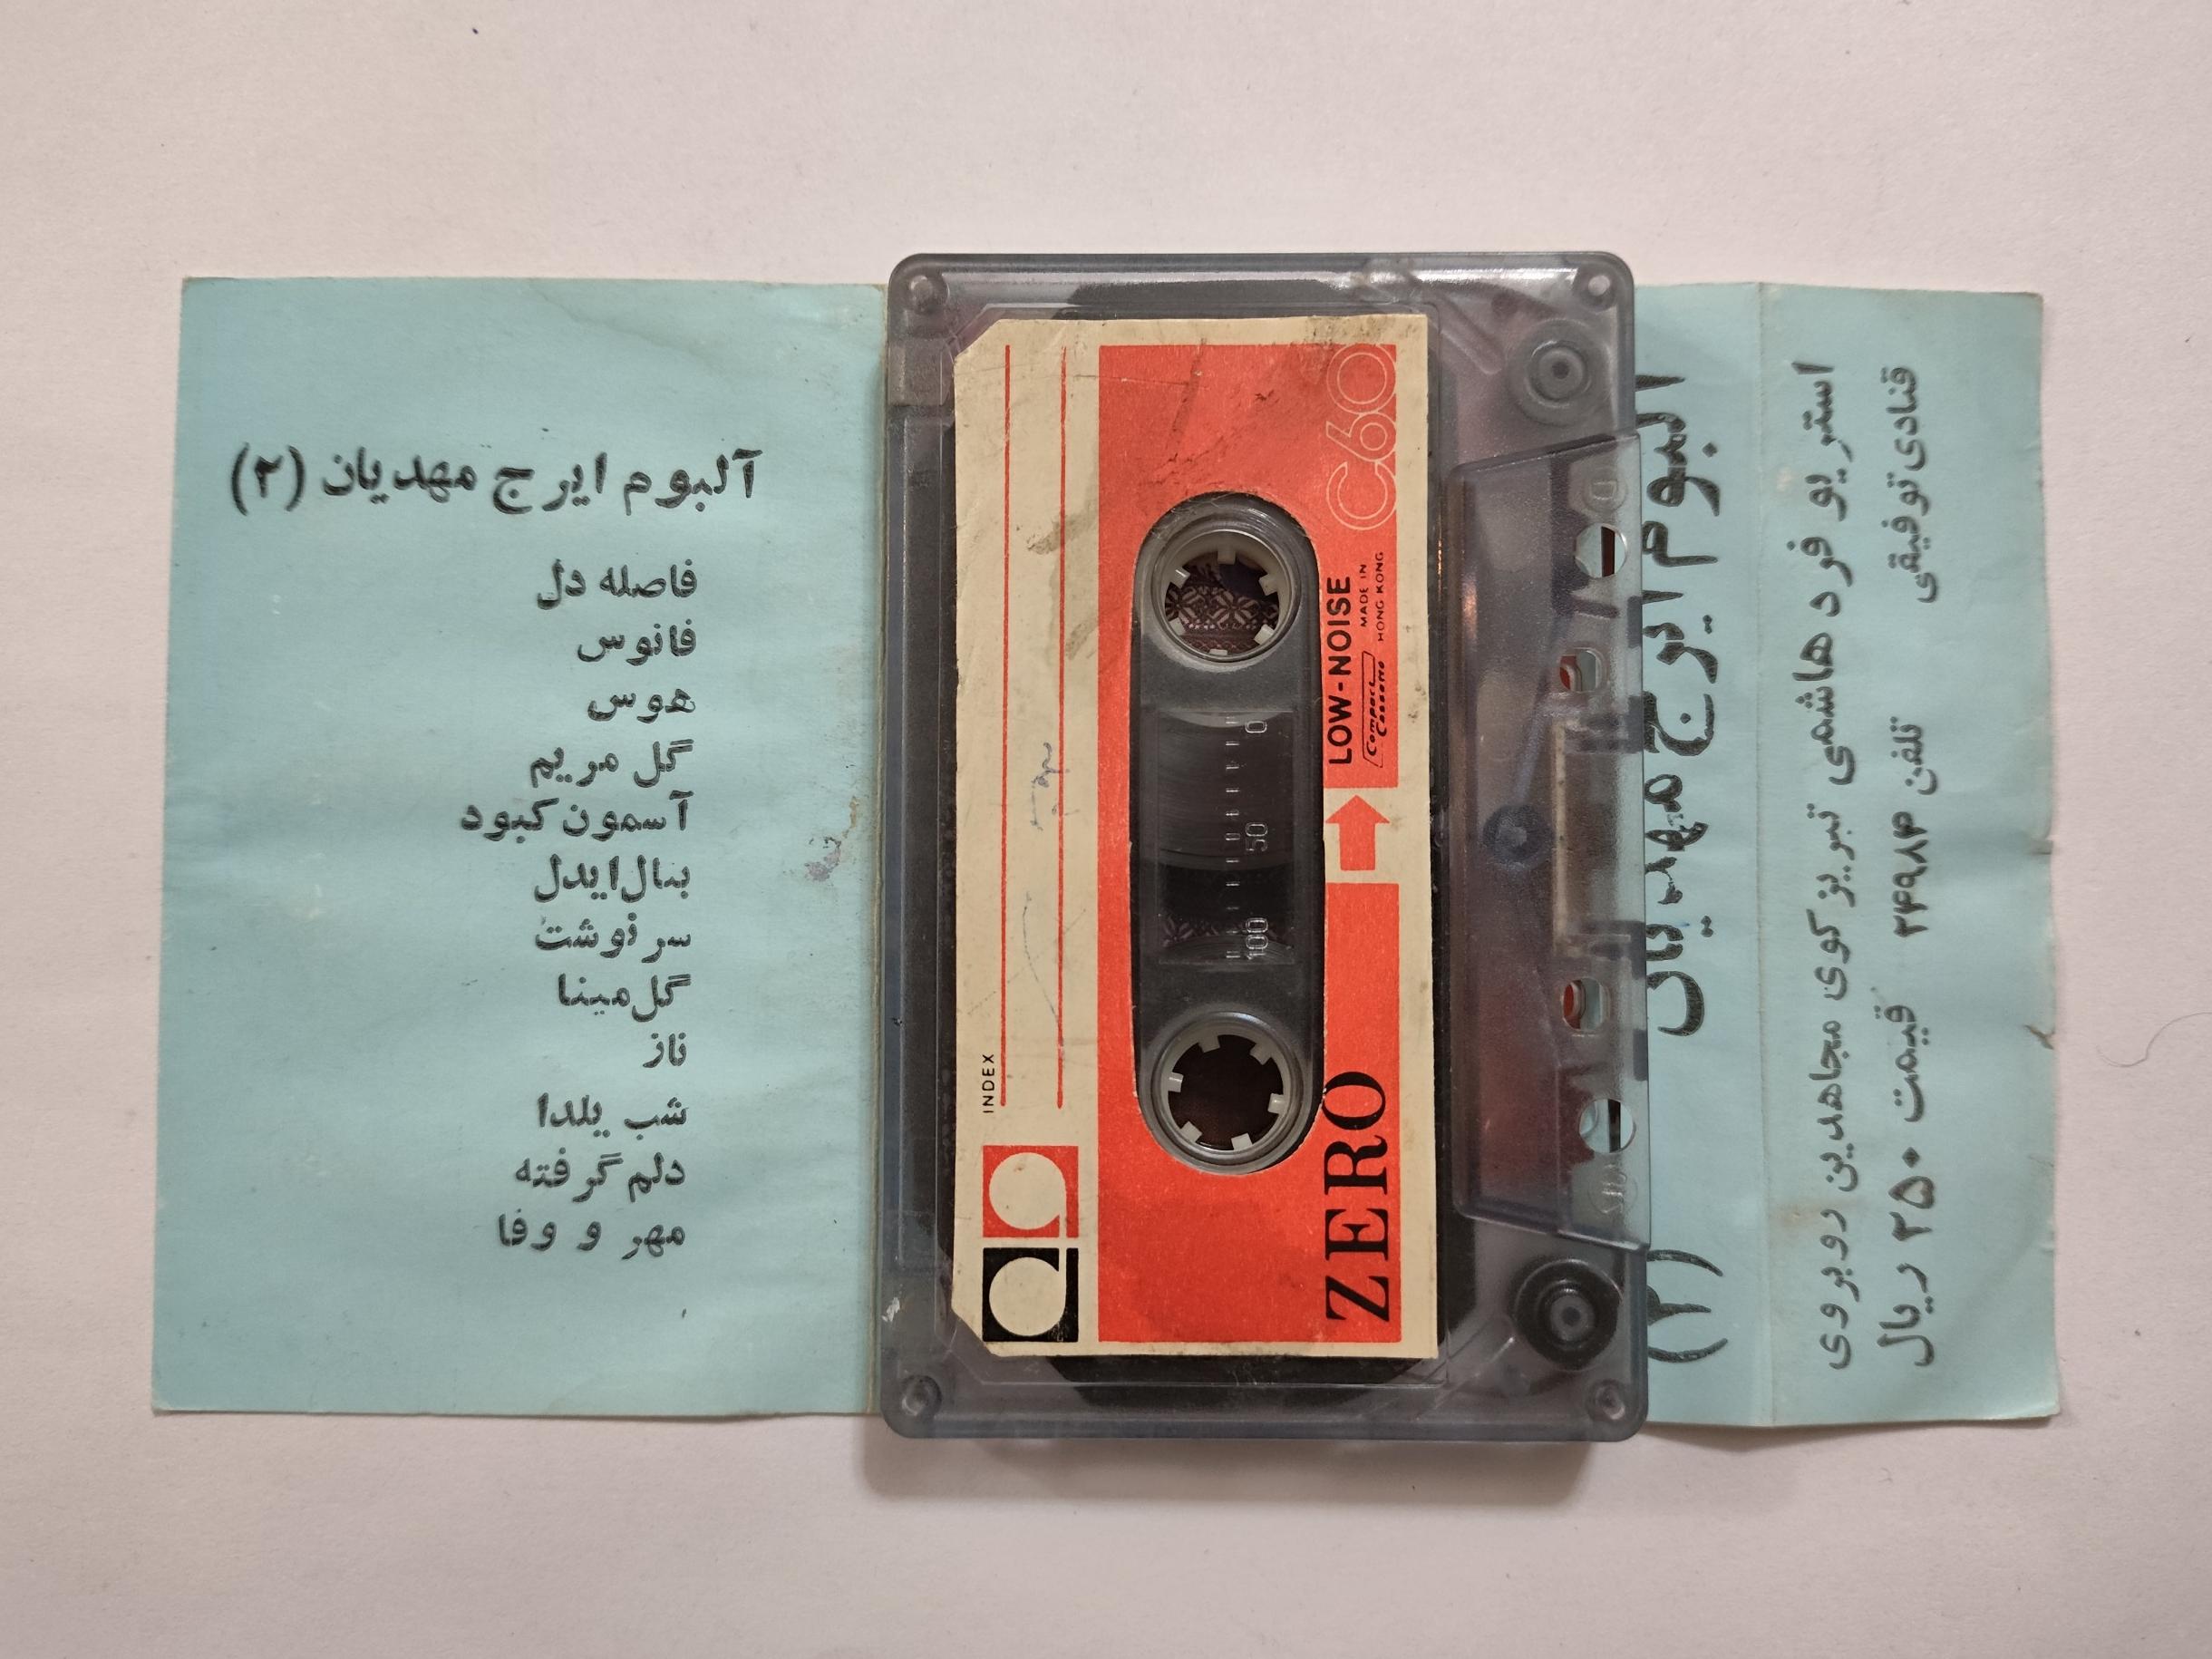 آلبوم ایرج مهدیان (۲)
فاصله دل
فانوس
هوس
گل مریم
آسمون کبود
بنال ایدل
سرنوشت
گل مینا
ناز
شب یلدا
دلم گرفته
مهر و وفا
INDEX
C60
LOW-NOISE
MADE IN
HONG KONG
Compact
Cassette
0 50 100
ZERO
آلبوم ایرج مهدیان (۲)
استریو فرد هاشمی تبریز کوی مجاهدین روبروی
قنادی توفیقی تلفن ۲۴۹۸۴ قیمت ۲۵۰ ریال